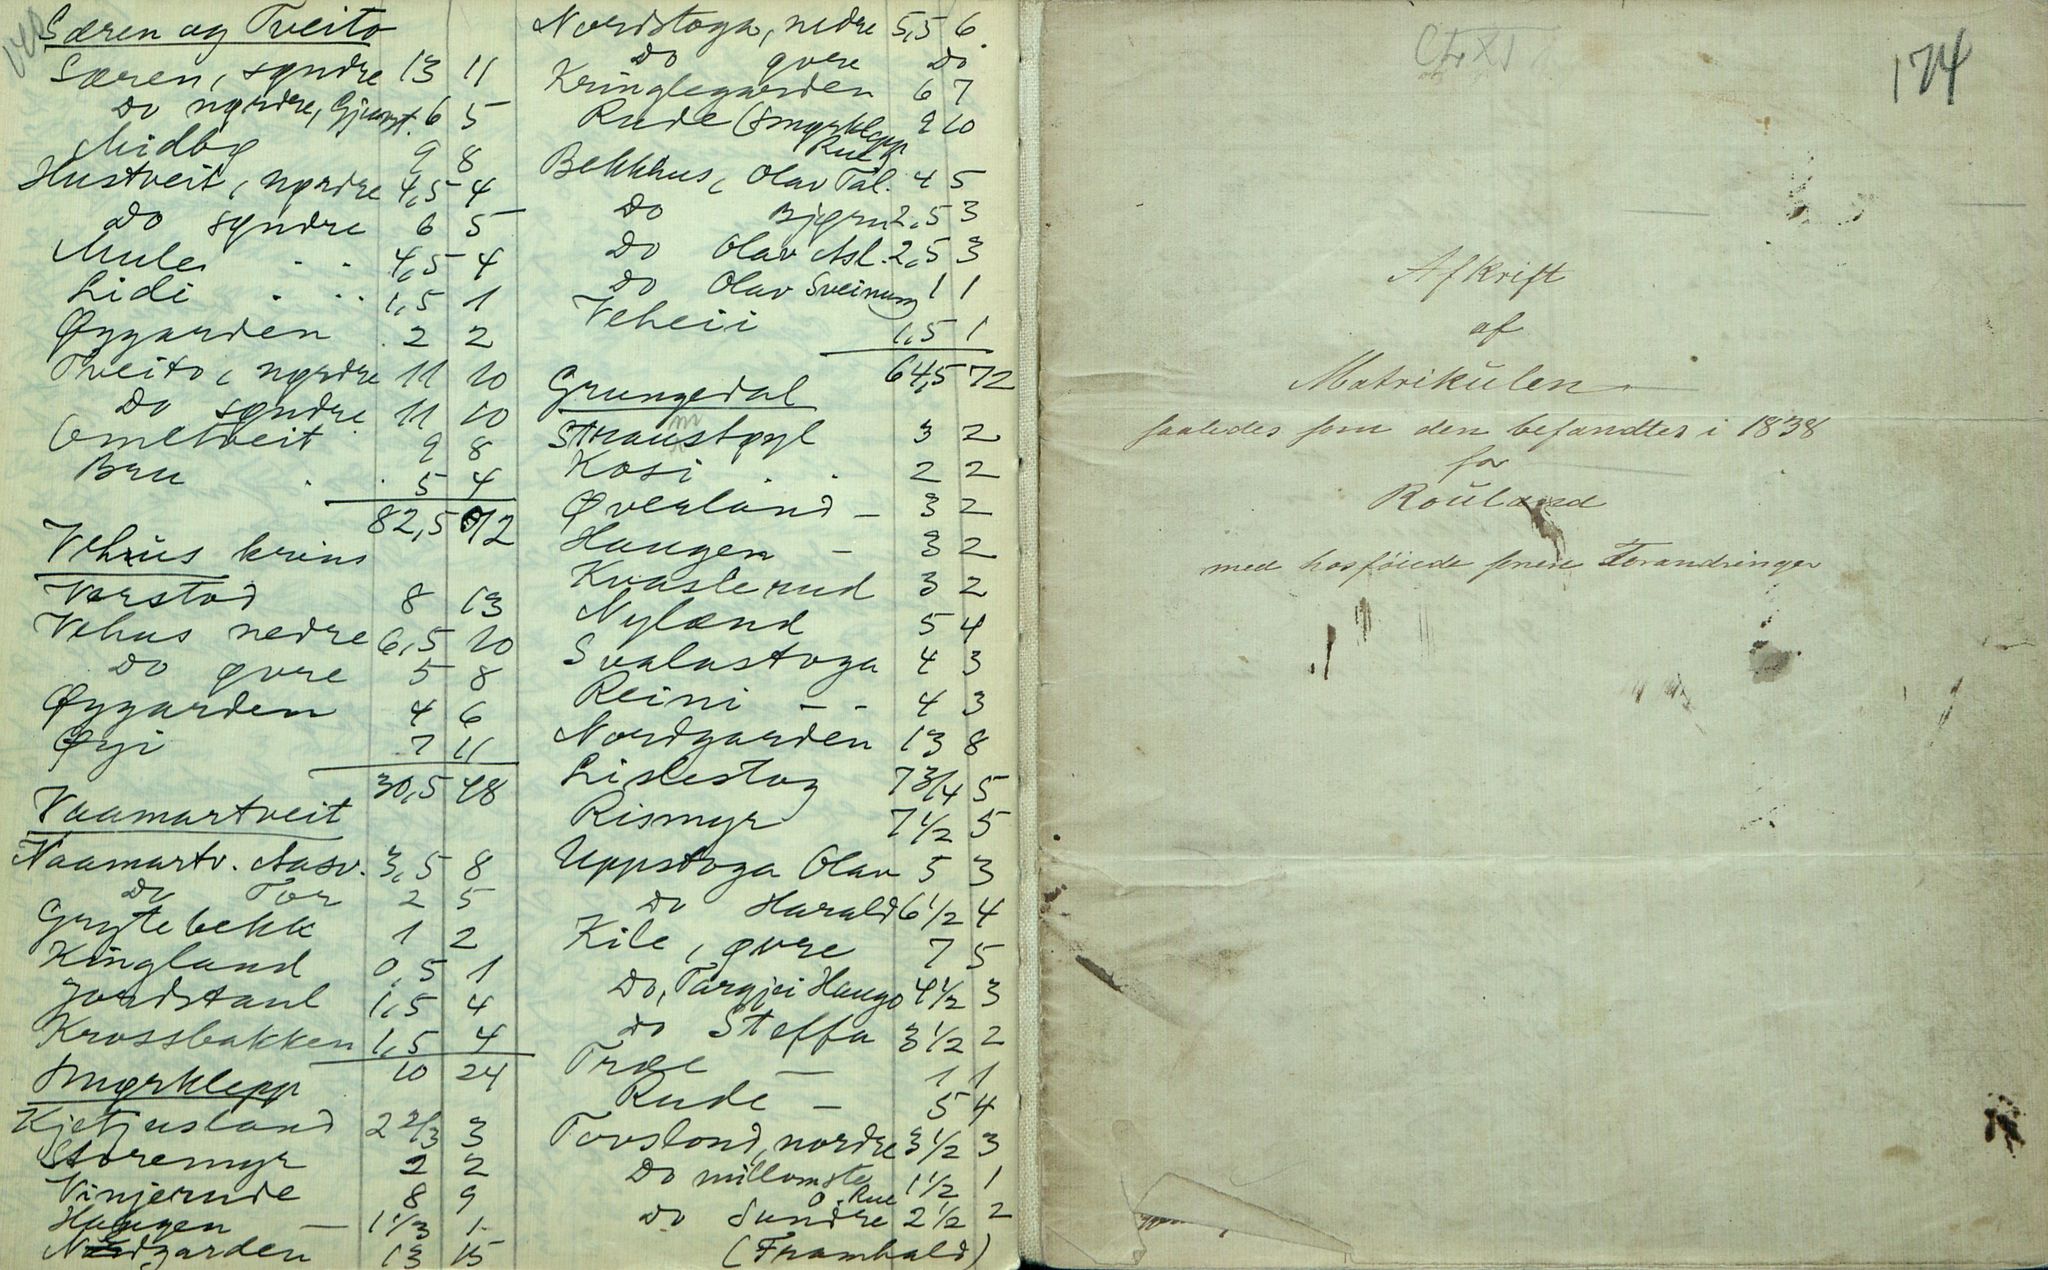 Særen og Tveito
Særen, søndre 13 11
Do nørdre, 6 5
Midbø 9 8
Hustveit, nørdre 4,5 4
Do søndre 6 5
Mule . . 4,5 4
Lidi . . . 1,5 1
Øygarden . 2 2
Tveito, nørdre 11 10
Do søndre 11 10
Omltveit 9 8
Bru . . 5 4
82,5 72
Vehus krins
Vørstad 8 13
Vehus nedre 6,5 10
Do øvre 5 8
Øygarden 4 6
Øyi 7 11
30,5 48
Vaamartveit
Vaamartv. Aasv. 3,5 8
Do Tor 2 5
Grytebekk 1 2
Kingland 0,5 1
Jordstaul 1,5 4
Krossbakken 1,5 4
10 24
Smørklepp
Kjetjusland 2 2/3 3
Storemyr 2 2
Vinjerude 8 9
Haugen — 1 1/3 1
Nordgarden 13 15
Nordstoga, nedre 5,5 6.
Do øvre Do
Kringlegarden 6 7
Rude (Smørklepp 9 10
Rue)
Bekkhus, Olav Tal. 4 5
Do Bjørn 2,5 3
Do Olav Asl. 2,5 3
Do Olav Sveinung 1 1
Veheii 1,5 1
64,5 72
Grungedal
Straumstøyl 3 2
Kosi . . 2 2
Øverland — 3 2
Haugen — 3 2
Kvaslerud 3 2
Nylænd 5 4
Svalastoga 4 3
Reini — - 4 3
Nordgarden 13 8
Lislestog 7 3/4 5
Rismyr 7 1/2 5
Uppstoga Olav 5 3
Do Harald 6 1/2 4
Kile, øvre 7 5
Do, Targjei Haugo 4 1/2 3
Do Steffa 3 1/2 2
Træe — 1 1
Rude — 5 4
Tovslond, nordre 3 1/2 3
Do millomste 1 1/2 1
O. Rue
Do Sundre 2 1/2 2
(Framhald)
CLXI
174
Afkrift
af
Matrikulen
saaledes som den befandtes i 1838
for
Rouland
med hosføiede senere Forandringer